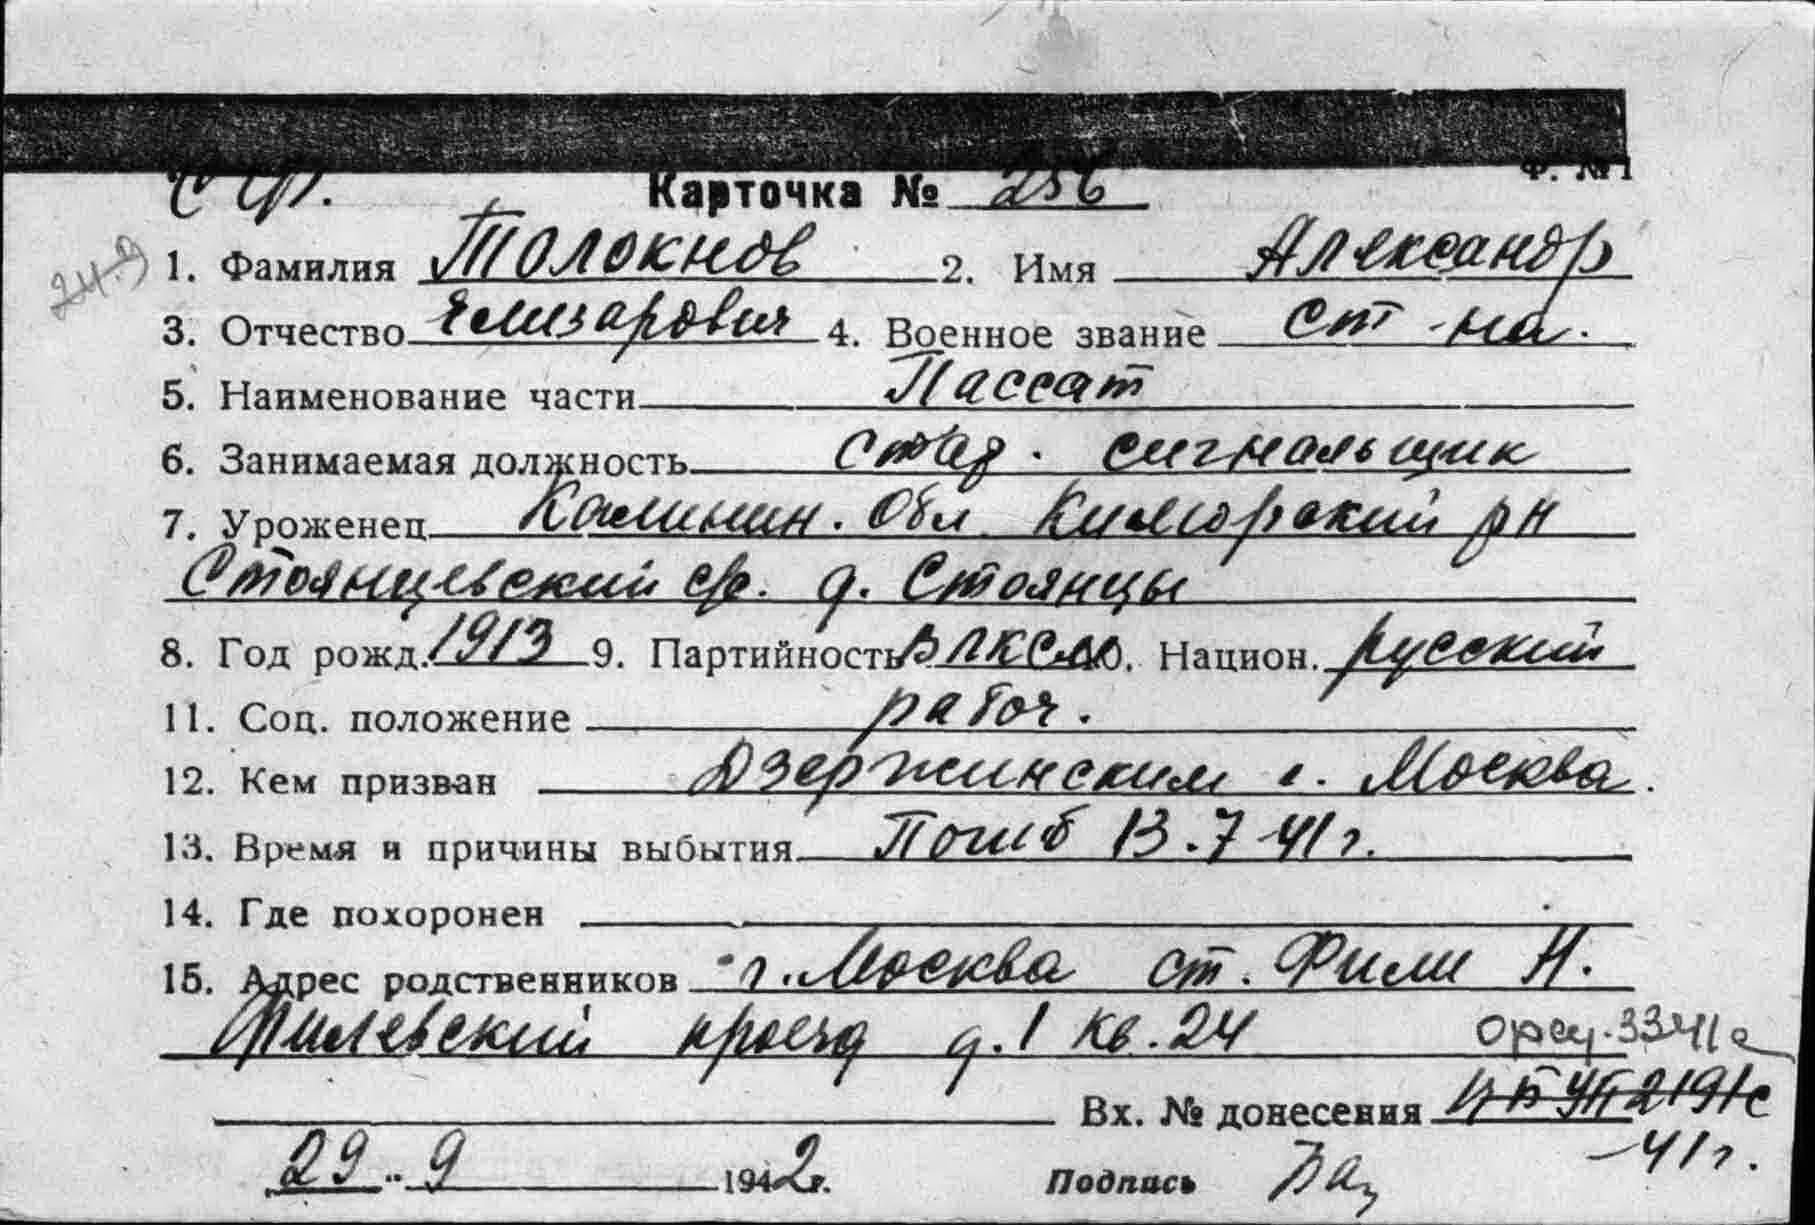 СФ. Карточка № 256 Ф. №1
24.9 1. Фамилия Толокнов 2. Имя Александр
3. Отчество Елизарович 4. Военное звание ст-на.
5. Наименование части Пассат
6. Занимаемая должность стар. сигнальщик
7. Уроженец Калинин. обл. Киморский рн
Стоянцевский с/с. д. Стоянцы
8. Год рожд. 1913 9. Партийность ВЛКСМ 10. Национ. русский
11. Соц. положение рабоч.
12. Кем призван Дзержинским г. Москва.
13. Время и причины выбытия Погиб 13.7-41г.
14. Где похоронен
15. Адрес родственников г. Москва ст. Фили Н.
Филевский проезд д.1 кв.24 3341с
Вх. № донесения 2191с
-41г.
29.. 9 1942г. Подпись